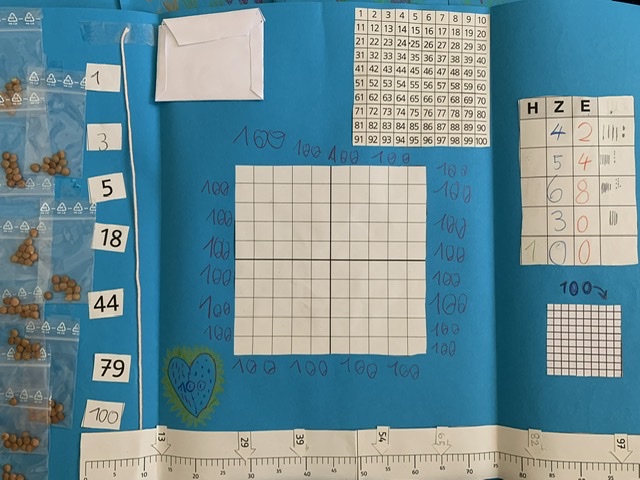 1
3
5
18
44
79
100
1 2 3 4 5 6 7 8 9 10
11 12 13 14 15 16 17 18 19 20
21 22 23 24 25 26 27 28 29 30
31 32 33 34 35 36 37 38 39 40
41 42 43 44 45 46 47 48 49 50
51 52 53 54 55 56 57 58 59 60
61 62 63 64 65 66 67 68 69 70
71 72 73 74 75 76 77 78 79 80
81 82 83 84 85 86 87 88 89 90
91 92 93 94 95 96 97 98 99 100
100
100 100 100
100 100
100
100 100
100 100
100 100
100 100
100 100
100
100 100 100 100
100
H Z E
4 2
5 4
6 8
3 0
1 0 0
100
13 29 39 54 65 82 97
5 10 15 20 25 30 35 40 45 50 55 60 65 70 75 80 85 90 95